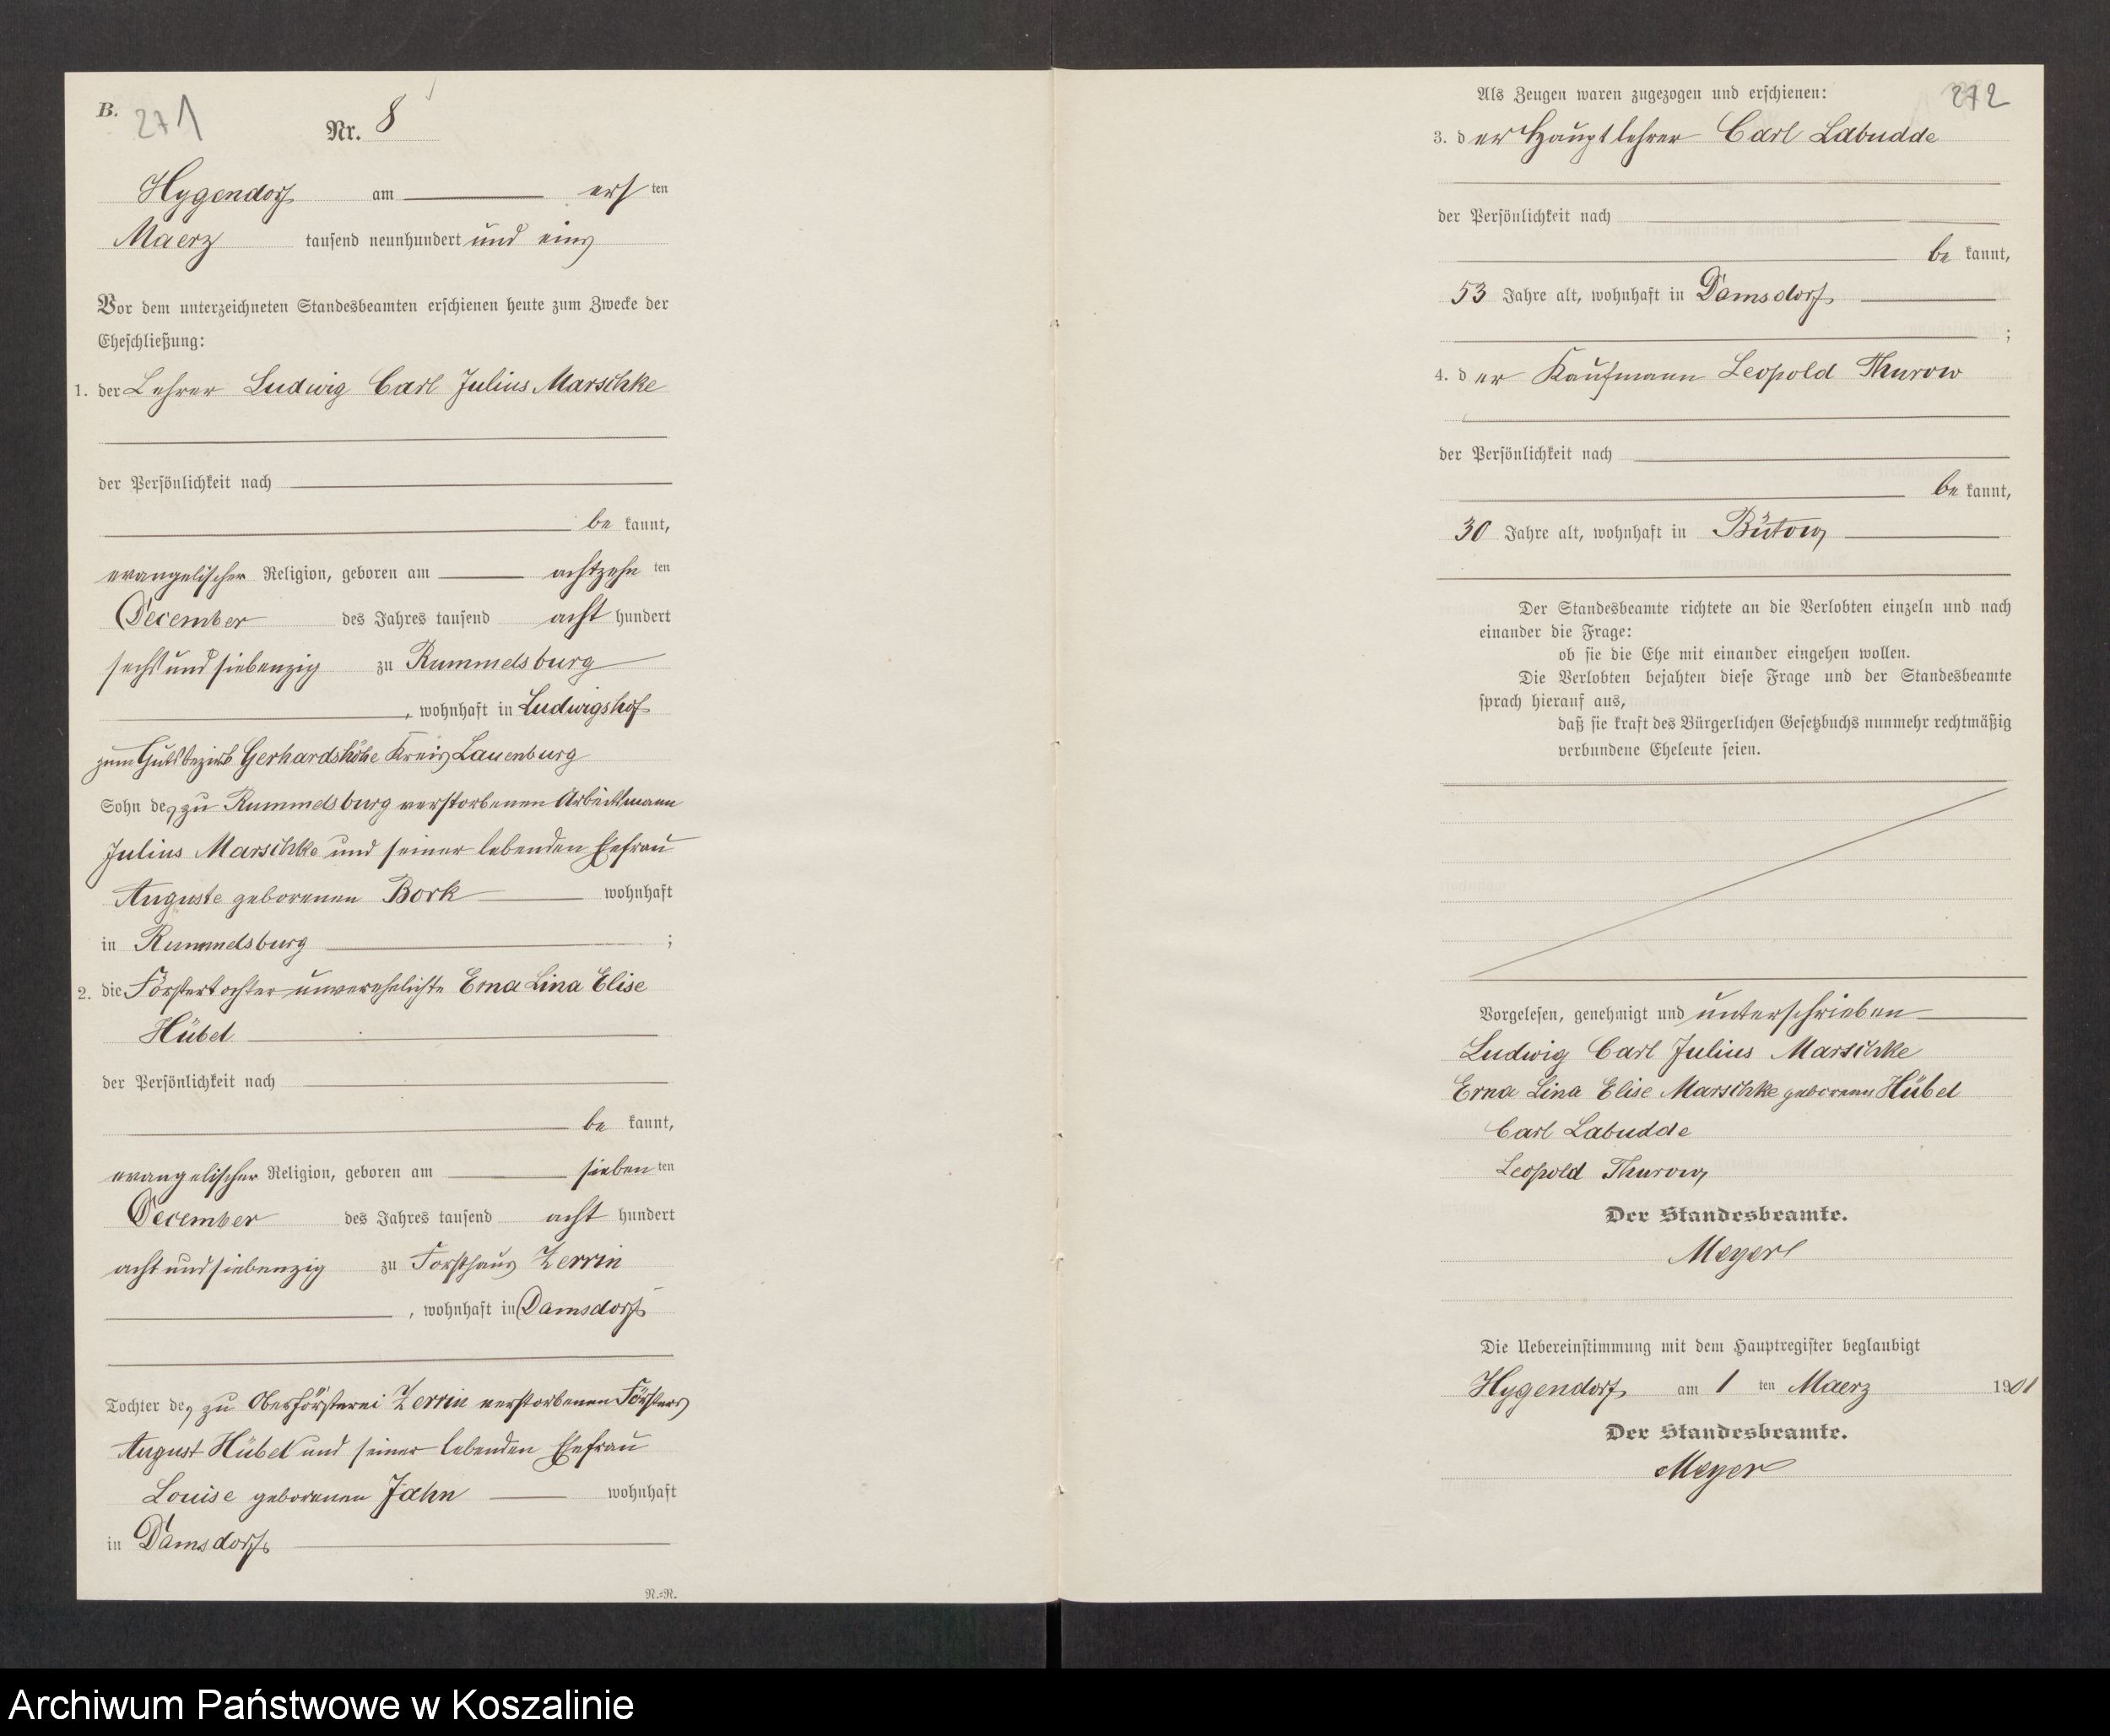 B.
271
Nr. 8
Hygendorf am ersten
Maerz tausend neunhundert und eins
Vor dem unterzeichneten Standesbeamten erschienen heute zum Zwecke der
Eheschließung:
1. der Lehrer Ludwig Carl Julius Marschke
der Persönlichkeit nach
be kannt,
evangelischer Religion, geboren am achtzehn ten
December des Jahres tausend acht hundert
sechs und siebenzig zu Rummelsburg
, wohnhaft in Ludwigshof
zum Gutsbezirk Gerhardshöhe Kreis Lauenburg
Sohn des zu Rummelsburg verstorbenen Arbeitsmann
Julius Marschke und seiner lebenden Ehefrau
Auguste geborenen Bork wohnhaft
in Rummelsburg ;
2. die Förstertochter unverehelichte Erna Lina Elise
Hübel
der Persönlichkeit nach
be kannt,
evangelischer Religion, geboren am sieben ten
December des Jahres tausend acht hundert
acht und siebenzig zu Forsthaus Zerrin
, wohnhaft in Damsdorf
Tochter des zu Oberförsterei Zerrin verstorbenen Försters
August Hübel und seiner lebenden Ehefrau
Louise geborenen Jahn wohnhaft
in Damsdorf
N.=R.
272
Als Zeugen waren zugezogen und erschienen:
3. der Hauptlehrer Carl Labudde
der Persönlichkeit nach
be kannt,
53 Jahre alt, wohnhaft in Damsdorf
;
4. der Kaufmann Leopold Thurow
der Persönlichkeit nach
be kannt,
30 Jahre alt, wohnhaft in Bütow
Der Standesbeamte richtete an die Verlobten einzeln und nach
einander die Frage:
ob sie die Ehe mit einander eingehen wollen.
Die Verlobten bejahten diese Frage und der Standesbeamte
sprach hierauf aus,
daß sie kraft des Bürgerlichen Gesetzbuchs nunmehr rechtmäßig
verbundene Eheleute seien.
Vorgelesen, genehmigt und unterschrieben
Ludwig Carl Julius Marschke
Erna Lina Elise Marschke geborene Hübel
Carl Labudde
Leopold Thurow
Der Standesbeamte.
Meyer
Die Uebereinstimmung mit dem Hauptregister beglaubigt
Hygendorf am 1 ten Maerz 1901
Der Standesbeamte.
Meyer
Archiwum Państwowe w Koszalinie